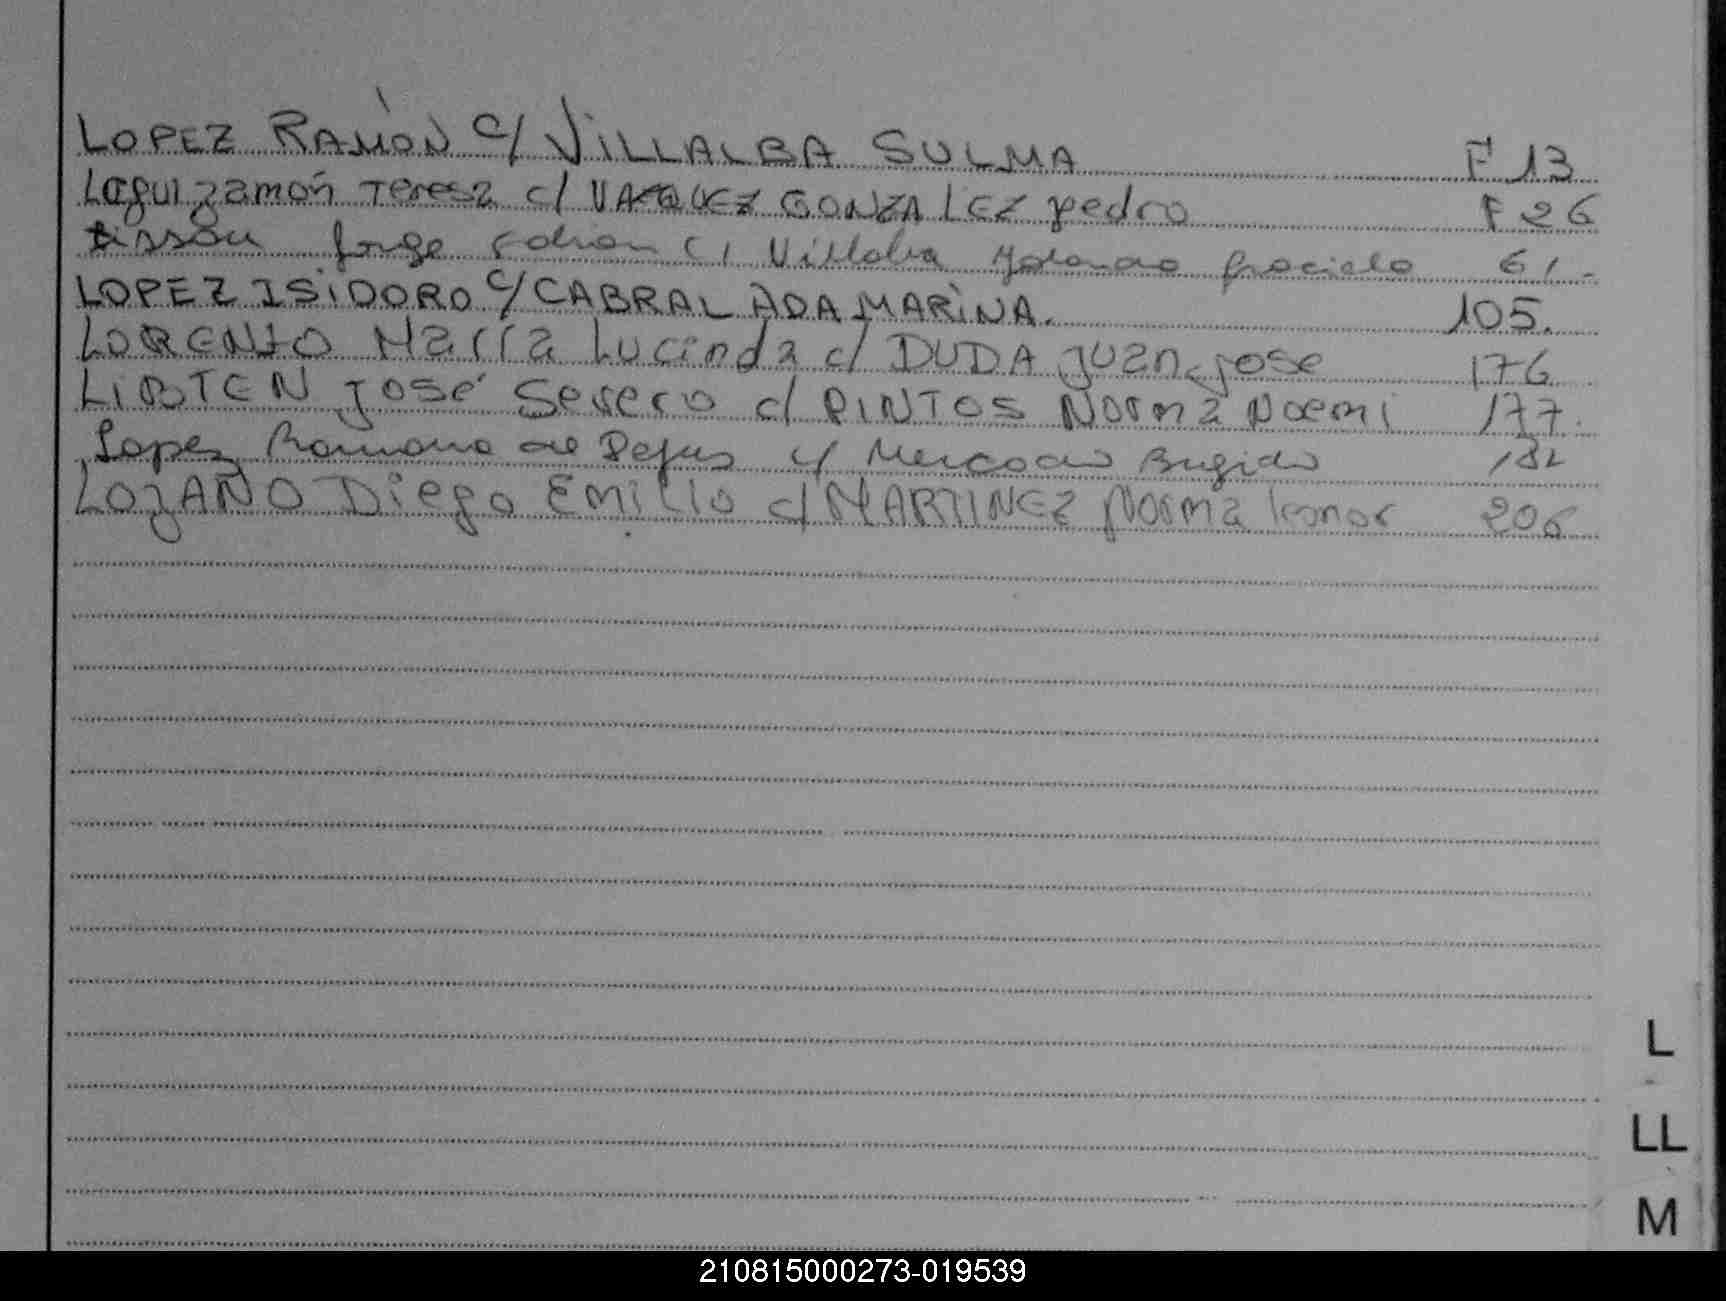 LOPEZ RAMÓN c/ VILLALBA SULMA F° 13
Leguizamón Teresa c/ VAZQUEZ GONZALEZ pedro F 26
Lissou Jorge Fabian c/ Villalba Yolanda Graciela 61.-
LOPEZ ISIDORO c/ CABRAL ADA MARINA. 105.
LORENZO María Lucinda c/ DUDA Juan Jose 176
José Severo c/ PINTOS Norma Noemi 177.
Lopez Ramona de Jesus c/ Mercado Brigido 182
LOZANO Diego Emilio c/ MARTINEZ Norma leonor 206
L
LL
M
210815000273-019539